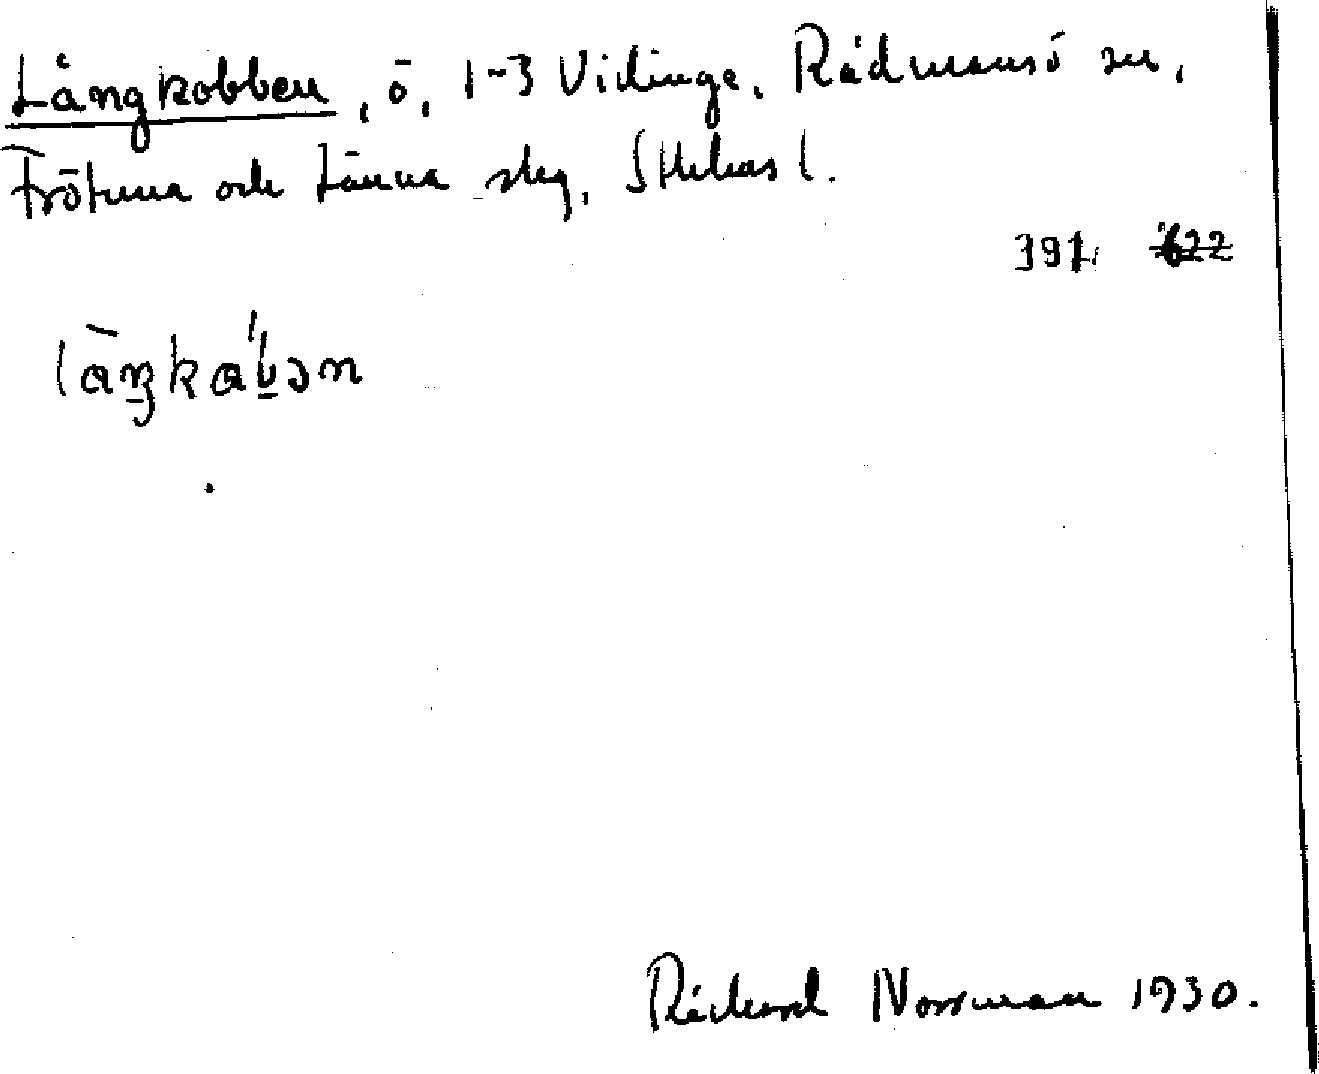 Långkobben, ö, 1-3 Vidinge, Rådmansö sn,
Frötuna och Länna skg, Sthlms l.
391, 622
làŋka'bən
Rickard Norrman 1930.